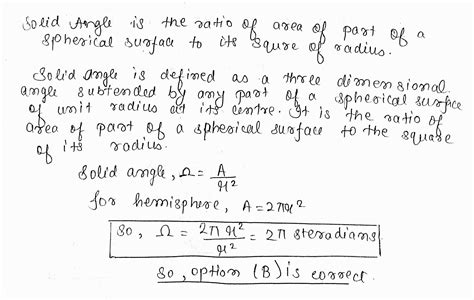 Solid Angle is the ratio of area of part of a
spherical surface to its squre of radius.
Solid angle is defined as a three dimensional
angle subtended by any part of a spherical surface
of unit radius at its centre. It is the ratio of
area of part of a spherical surface to the square
of its radius.
Solid angle, Ω = A/r²
for hemisphere, A = 2πr²
So, Ω = 2πr²/r² = 2π steradians
So, option (B) is correct.